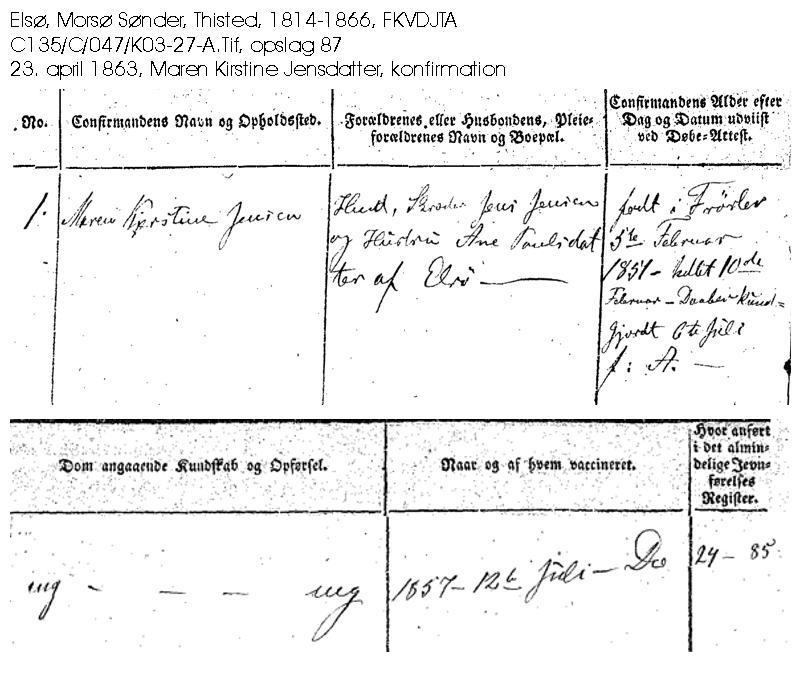 Elsø, Morsø Sønder, Thisted, 1814-1866, FKVDJTA
C135/C/047/K03-27-A.Tif, opslag 87
23. april 1863, Maren Kirstine Jensdatter, konfirmation
No.
Confirmandens Navn og Opholdssted.
Forældrenes eller Husbondens, Pleie-
forældrenes Navn og Boepæl.
Confirmandens Alder efter
Dag og Datum udviist
ved Døbe-Attest.
1.
Maren Kjerstine Jensen
Huusm., Skræder Jens Jensen
og Hustru Ane Poulsdat
ter af Elsø
født i Frörlev
5te Februar
1851 - hdbt 10de
Februar - Daaben kund=
gjordt 6te Juli
s: A. -
Dom angaaende Kundskab og Opførsel.
Naar og af hvem vaccineret.
Hvor anført
i det almin-
delige Jevn-
førelses
Register.
mg - - - mg
1857 - 12te Juli - Do
24 - 85